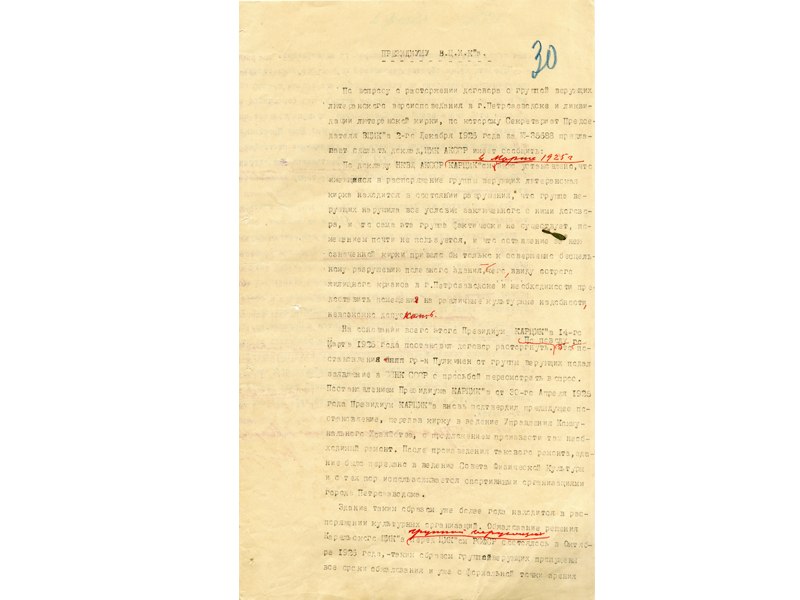 ПРЕЗИДИУМУ В.Ц.И.К"а.
30
По вопросу о расторжении договора с группой верующих
лютеранского вероисповедания в г.Петрозаводске и ликви-
дации лютеранской кирки, по которому Секретариат Предсе-
дателя ВЦИК"а 2-го Декабря 1925 года за предла-
гает сделать доклад, ЦИК АКССР имеет сообщить:
4 Марта 1925 г
По докладу НКВД АКССР КАРЦИК"ом установлено, что
имеющаяся в распоряжении группы верующих лютеранская
кирка находится в состоянии разрушения, что группа ве-
рующих нарушила все условия заключенного с ними догово-
ра, и что сама эта группа фактически не существует, по-
мещением почти не пользуется, и что оставление за ней
означенной кирки привело бы только к совершенно бесцель-
ному разрушению полезного здания, чего, ввиду острого
жилищного кризиса в г.Петрозаводске и необходимости пре-
доставить помещения на различные культурные надобности,
невозможно допускать.
На основании всего этого Президиум КАРЦИК"а 14-го
Марта 1925 года постановил договор расторгнуть. По поводу это-
го по-
становления гр-н Пулкинен от группы верующих подал
заявление в ЦИК СССР с просьбой пересмотреть вопрос.
Постановлением Президиума КАРЦИК"а от 30-го Апреля 1925
года Президиум КАРЦИК"а вновь подтвердил прежнее по-
становление, передав кирку в ведение Управления Комму-
нального Хозяйства, с предложением произвести там необ-
ходимый ремонт. После произведения такового ремонта, зда-
ние было передано в ведение Совета Физической Культуры
и с тех пор использовывается спортивными организациями
города Петрозаводска.
Здание таким образом уже более года находится в рас-
поряжении культурных организаций. Обжалование решения
группой верующих
Карельского ЦИК"а перед ЦИК"ом РСФСР состоялось в Октяб-
ре 1925 года,-таким образом группой верующих пропущены
все сроки обжалования и уже с формальной точки зрения